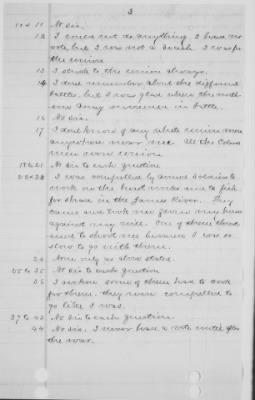 3
10 & 11 No sir.
12 I could not do anything. I had no
vote, but I was not a Secesh. I was for
the union
13 I stuck to the union always.
14 I dont remember about the different
battles. but I was glad when the north-
ern Army was in battle.
16 No Sir.
17 I dont know of any white union men
anywhere near me. All the Colored
men were union
18 to 21 No Sir to each question
22 & 23 I was compelled by armed soldiers to
work on the breast works and to fish
for shad in the James River. They
came and took me from my home
against my will. One of them threatened
to shoot me because I was so
slow to go with them.
24 None only as above stated.
25 to 35 No Sir to each question
36 I some of them had to work
for them. they were compelled to
go like I was.
37 to 43 No Sir to each question.
44 No Sir. I never had a vote until after
the war.